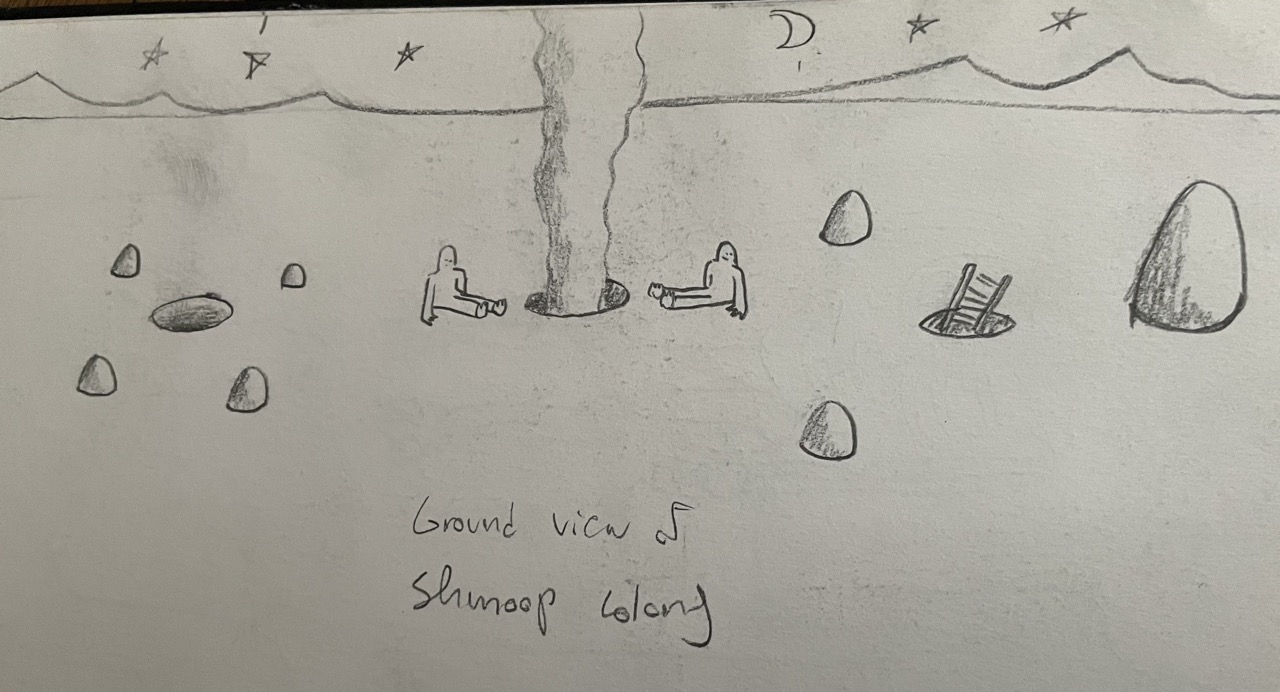 Ground view of
Shmoop colony